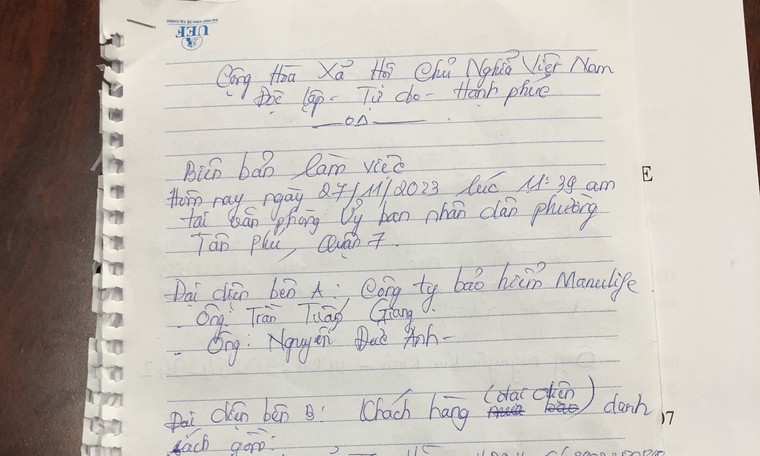 UEF
Cộng Hòa Xã Hội Chủ Nghĩa Việt Nam
Độc lập - Tự do - Hạnh phúc
Biên bản làm việc
Hôm nay ngày 27/11/2023 lúc 11:39 am
tại văn phòng Ủy ban nhân dân phường
Tân Phú, Quận 7.
E
Đại diện bên A: Công ty bảo hiểm Manulife
- Ông: Trần Tuấn Giang
- Ông: Nguyễn Đức Anh -
Đại diện bên B: Khách hàng (đại diện) danh
sách gồm:
07